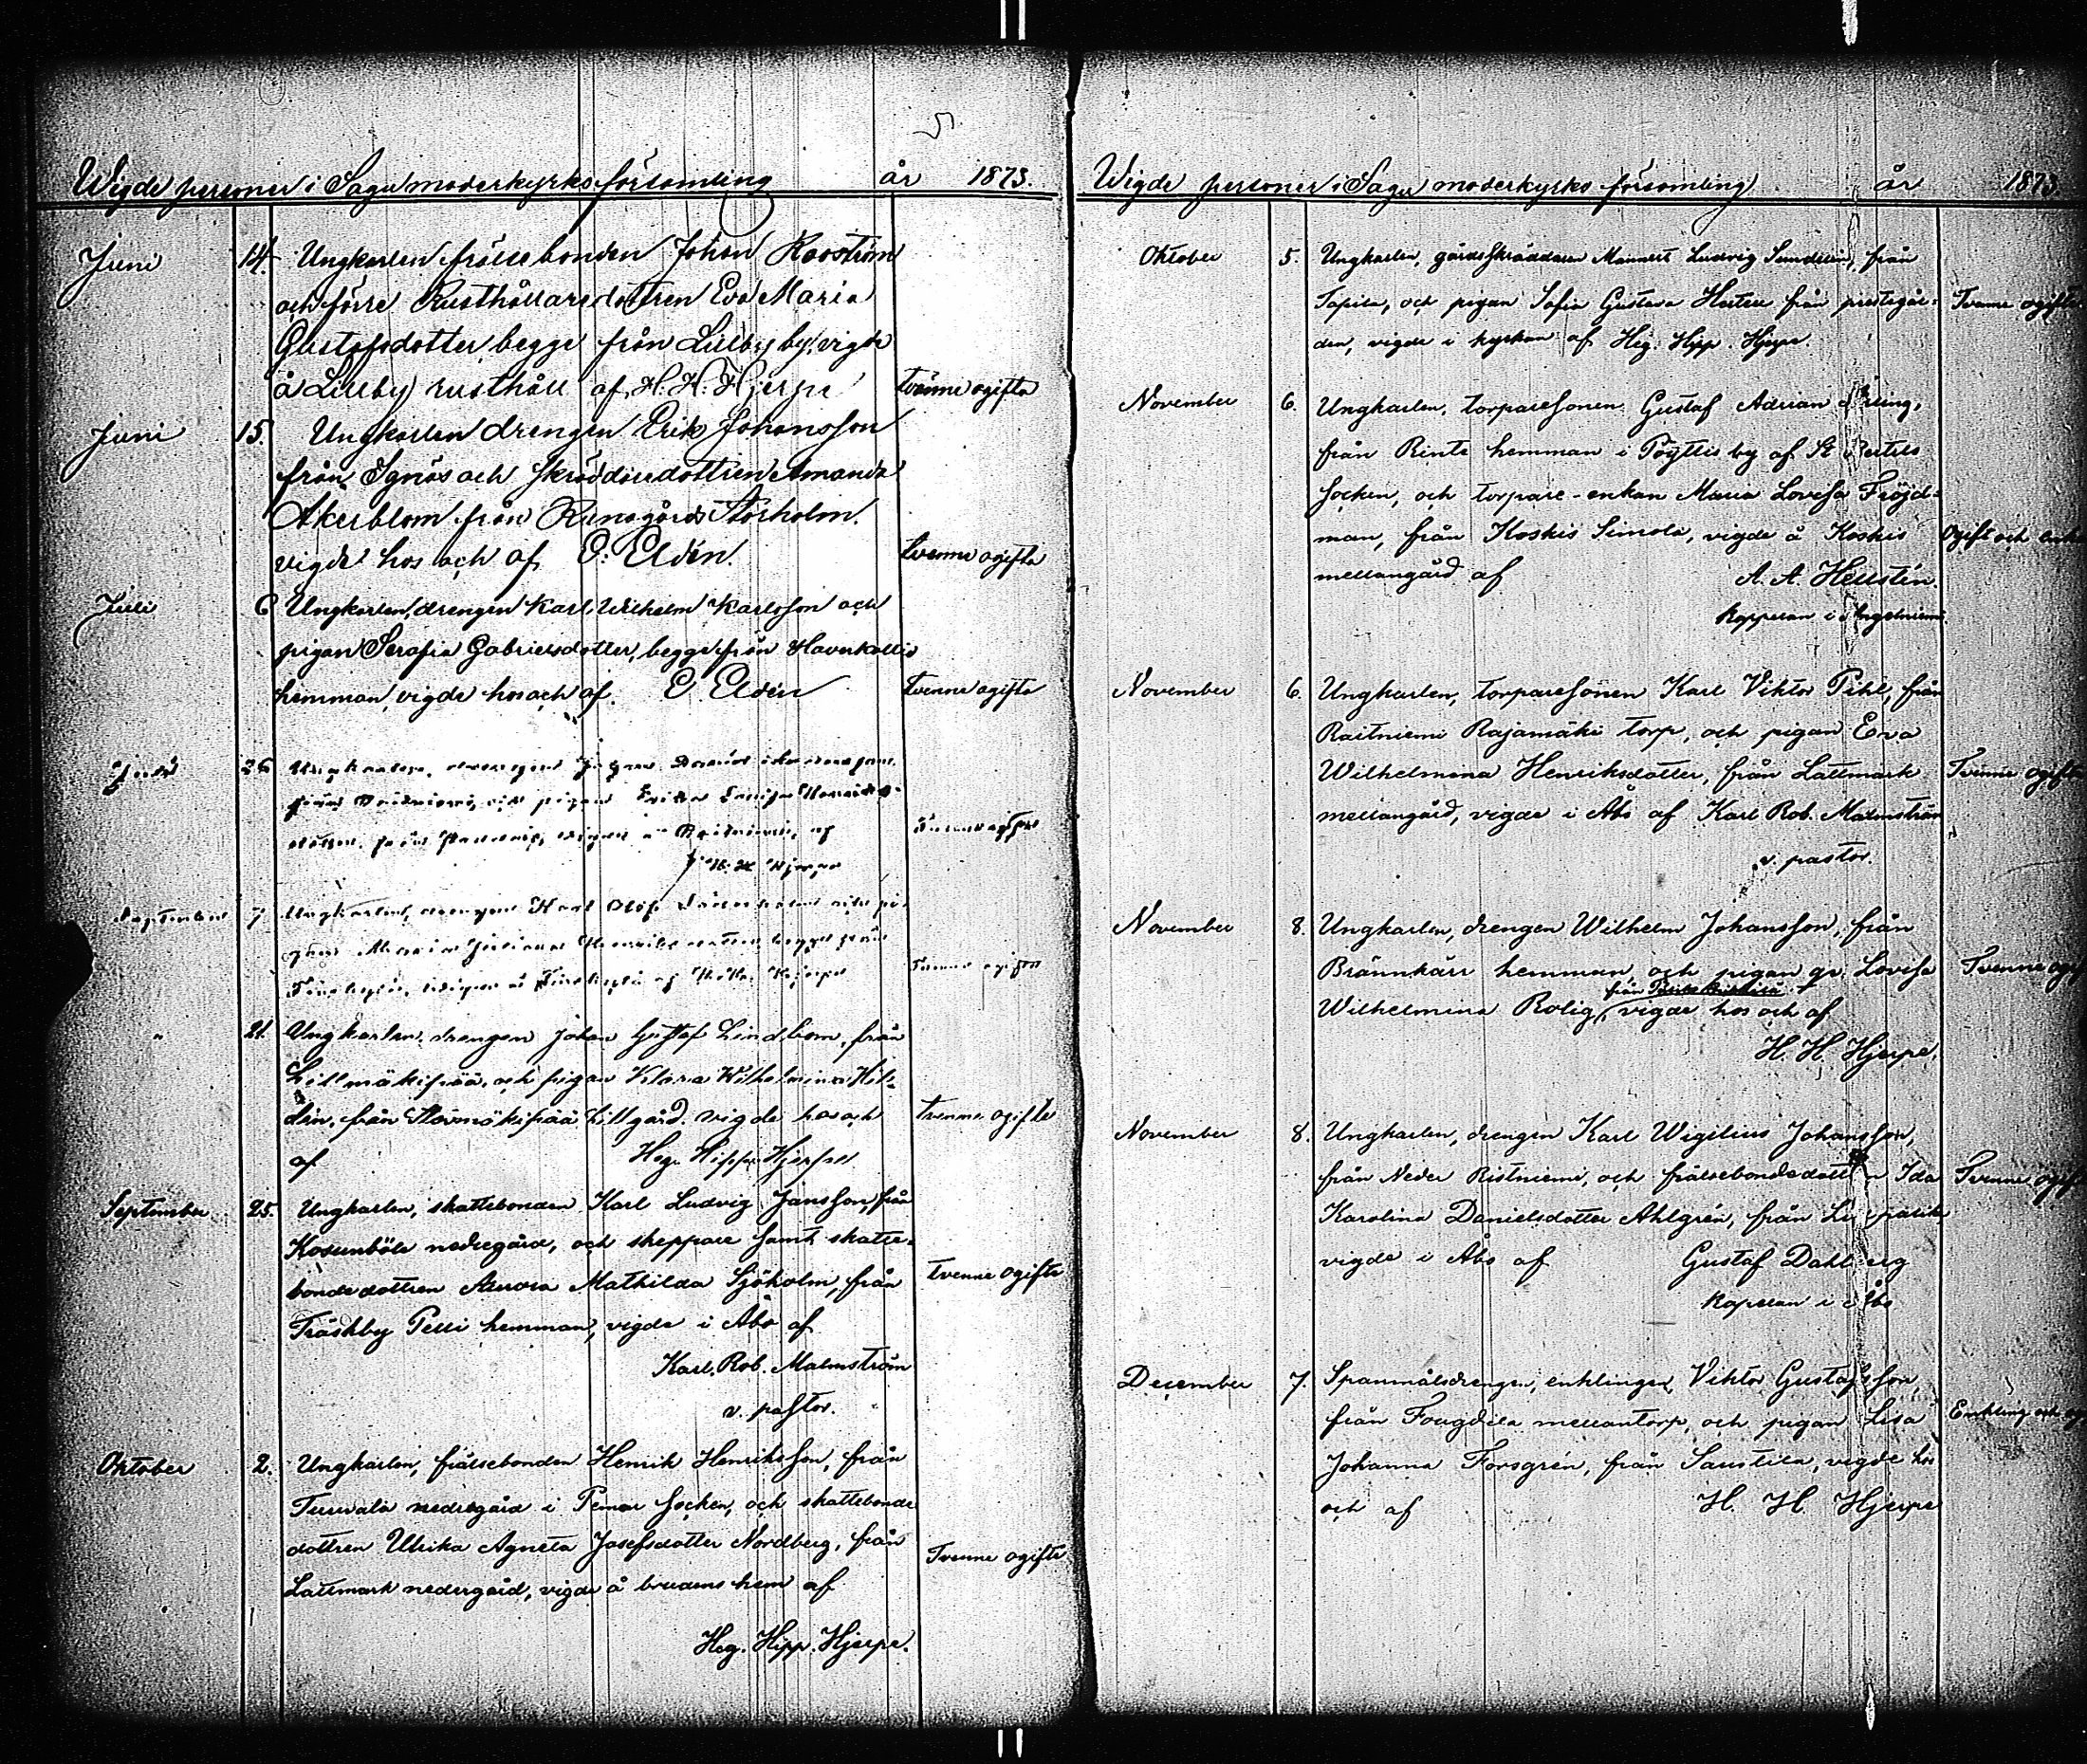 Wigde personer i Sagu moderkyrko församling år 1873.
Juni 14. Ungkarlen frälsebonden Johan Roström
och förre Rusthållaredottren Eva Maria
Gustafsdotter, begge från Lillby by, vigde
å Lillby rusthåll af H. H. Hjerpe tvänne ogifta
Juni 15. Ungkarlen drengen Erik Johansson
från Sgnäs och skräddaredottren Amanda
Åkerblom från Runagårds Storholm.
vigde hos och af E. Eldén. tvenne ogifta
Juli 6 Ungkarlen, drengen Karl Wilhelm Karlsson och
pigan Serafia Gabrielsdotter, begge från Haverkallio
hemman, vigde hos och af. E. Eldén tvenne ogifte
26 Ungkarlen, drengen
och pigan
vigde å af Tvenne ogifte
H. H. Hjerpe
September 7 Ungkarlen, drengen Karl och pi-
gan begge från
vigde å af Hjerpe Tvenne ogifte
" 21. Ungkarlen, drengen Johan Gustaf Lindbom, från
Lillmäkipää, och pigan Klara Wilhelmina Hil-
dén, från Stormäkipää Lillgård. vigde hos och Tvenne ogifte
af Heg. Hipp. Hjerpe
September 25. Ungkarlen, skattebonden Karl Ludvig Jansson, från
Kosunböle nedregård, och skeppare samt skatte-
bondedottren Aurora Mathilda Sjöholm, från tvenne ogifte
Träskby Pelli hemman, vigde i Åbo af
Karl. Rob. Malmström
v. pastor.
Oktober 2. Ungkarlen, frälsebonden Henrik Henriksson, från
nedregård i Pemar socken, och skattebonde
dottren Ulrika Agneta Josefsdotter Nordberg, från Tvenne ogifte
Lättmark nedergård, vigde å brudens hem af
Heg. Hipp. Hjerpe.
Wigde personer i Sagu moderkyrko församling år 1873
Oktober 5. Ungkarlen, gårdsskräddaren Mannert Ludvig Sundelin, från
Tapila, och pigan Sofia Gustava Hertell från prestegår-
den, vigde i kyrkan af Heg. Hipp. Hjerpe. Tvenne ogifte.
November 6. Ungkarlen, torparesonen Gustaf Adrian
från Rinte hemman i Pöyttis by af St Bertils
socken, och torpare-enkan Maria Lovisa Fröjd-
man, från Koskis Simola, vigde å Koskis Ogift och enka
mellangård af A. A. Hellstén.
Kappelan i Angelniemi
November 6. Ungkarlen, torparesonen Karl Viktor Pihl, från
Raitniemi Rajamäki torp, och pigan Eva
Wilhelmina Henriksdotter, från Lättmark Tvenne ogifte
mellangård, vigde i Åbo af Karl Rob. Malmström
v. pastor.
November 8. Ungkarlen, drengen Wilhelm Johansson, från
Brännkärr hemman och pigan gr. Lovisa Tvenne
från
Wilhelmina Rolig, vigde hos och af
H. H. Hjerpe.
November 8. Ungkarlen, drengen Karl Wigilius Johansson,
från Neder Ristniemi, och frälsebondedottren Ida Tvenne
Karolina Danielsdotter Ahlgrén, från
vigde i Åbo af Gustaf Dahlberg
Kapelan i Åbo
December 7. Spanmålsdrengen, enklingen, Viktor Gustafsson,
från Fougdila mellantorp, och pigan Lisa Enkling och
Johanna Forsgrén, från Saustila, vigde hos
och af H. H. Hjerpe